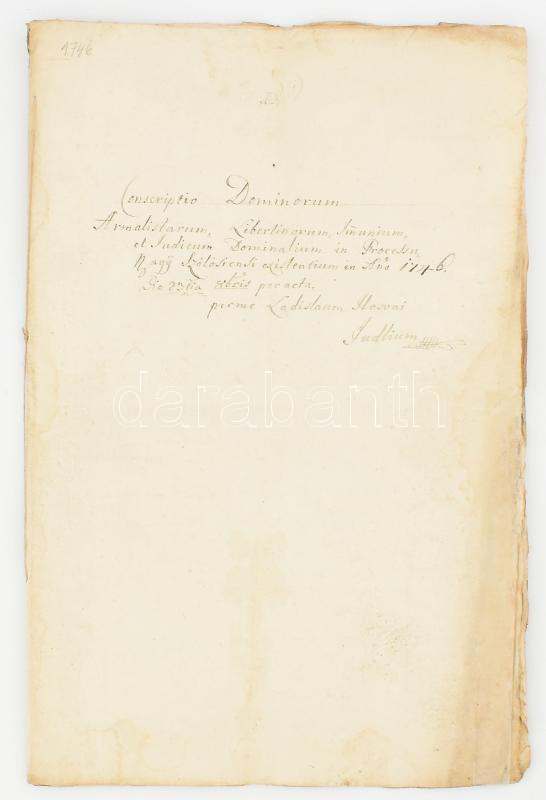 1746
Conscriptio Dominorum
Armalistarum, Libertinorum, Im̄unium,
et Judicum Dominalium in Processu
Nagÿ Szőlősiensi existentium in Año 1746.
Die 23tia Xbris peracta,
per me Ladislaum Ilosvai
Judlium
darabanth